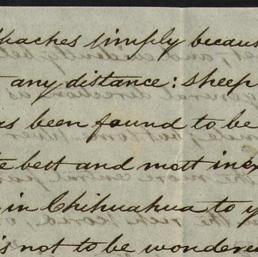 paches simply because
any distance: sheep
as been found to be
best and most inex
in Chihuahua to y
is not to be wondere